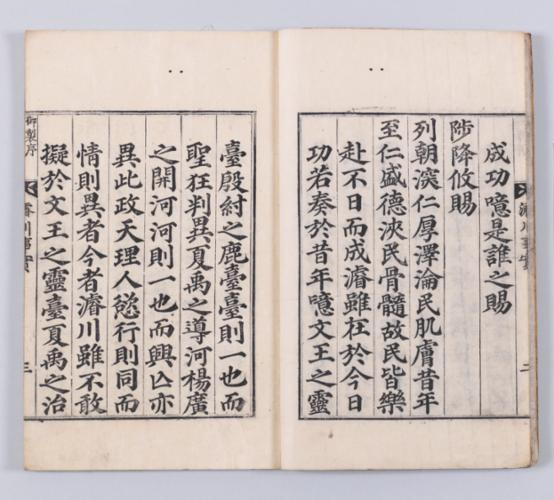 濬川事實
二
成功噫是誰之賜
陟降攸賜
列朝深仁厚澤淪民肌膚昔年
至仁盛德浹民骨髓故民皆樂
赴不日而成濬雖在於今日
功若奏於昔年噫文王之靈
臺殷紂之鹿臺臺則一也而
聖狂判異夏禹之導河楊廣
之開河河則一也而興亡亦
異此政天理人慾行則同而
情則異者今者濬川雖不敢
擬於文王之靈臺夏禹之治
御製序
濬川事實
三